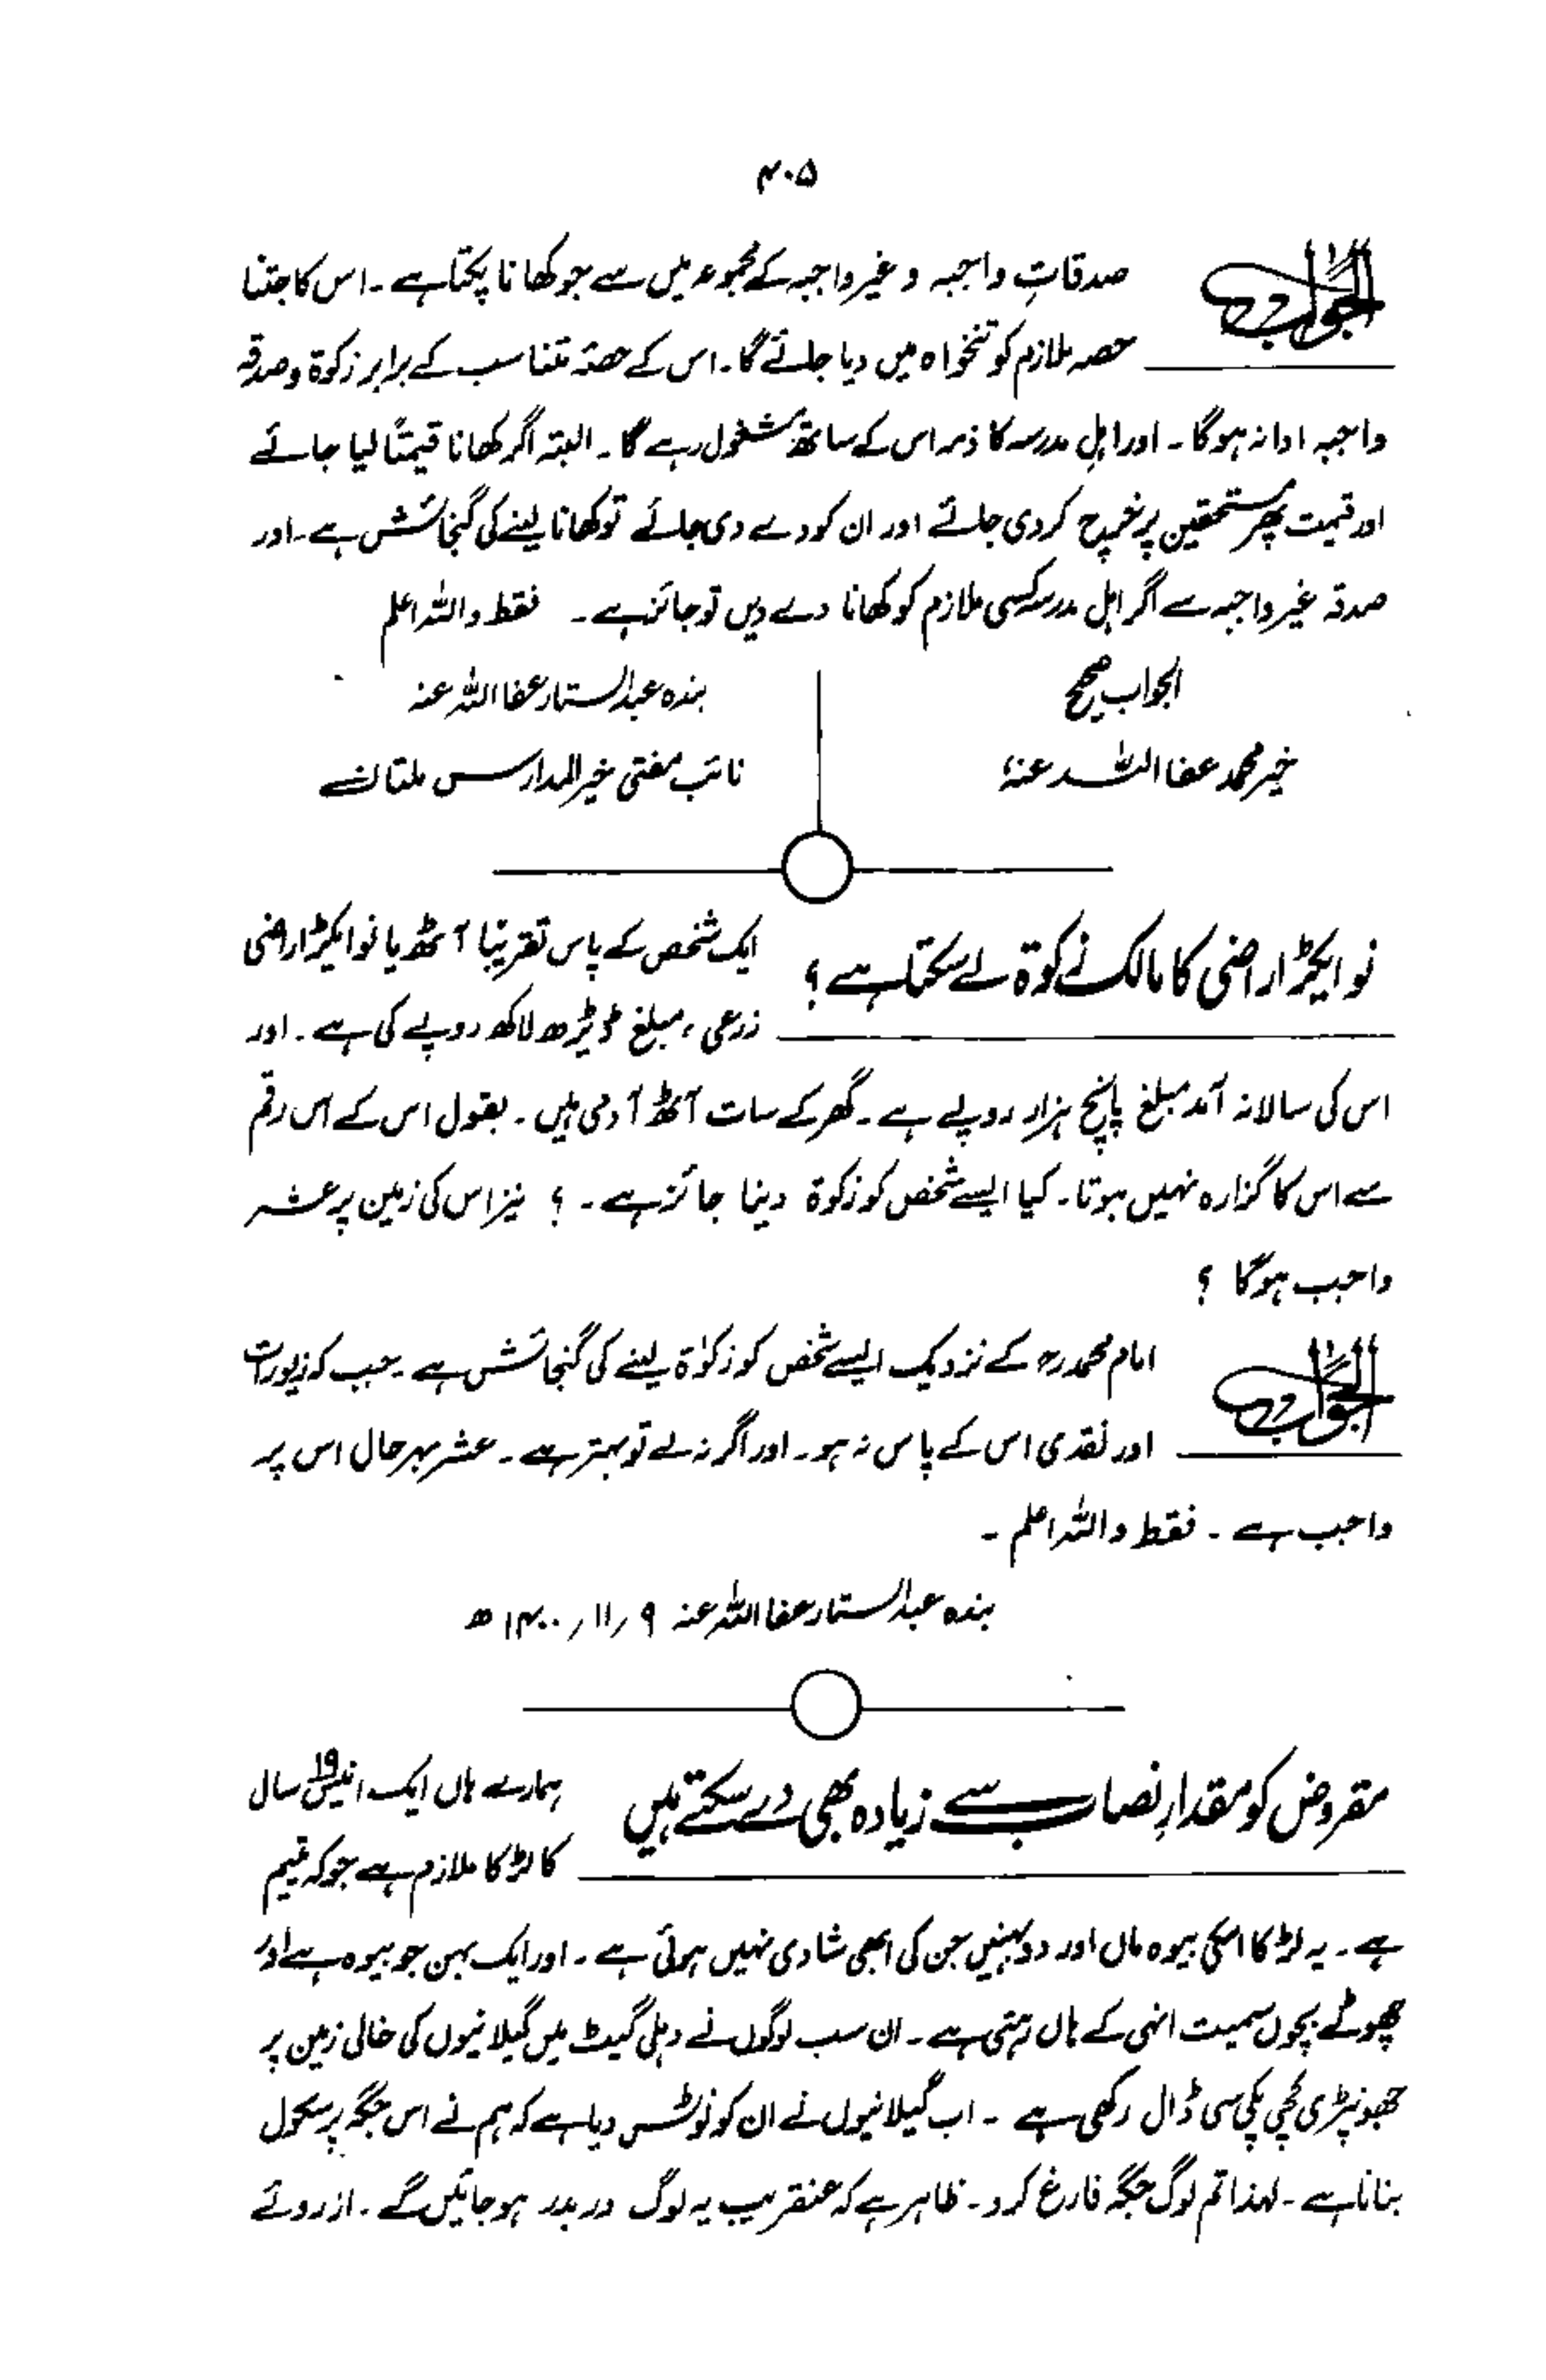 ۴۰۵
الجواب
صدقاتِ واجبہ و غیر واجبہ کے مجموعہ میں سے جو کھانا پکتا ہے ۔ اس کا جتنا
حصہ ملازم کو تنخواہ میں دیا جائے گا ۔ اس کے حصۂ متناسب کے برابر زکوٰۃ و صدقہ
واجبہ ادا نہ ہوگا ۔ اور اہلِ مدرسہ کا ذمہ اس کے ساتھ مشغول رہے گا ۔ البتہ اگر کھانا قیمتًا لیا جائے
اور قیمت پھر مستحقین پر خرچ کر دی جائے اور ان کو دے دی جائے تو کھانا لینے کی گنجائش ہے ۔ اور
صدقہ غیر واجبہ سے اگر اہل مدرسہ کسی ملازم کو کھانا دے دیں تو جائز ہے ۔ فقط واللہ اعلم
الجواب صحیح
خیر محمد عفا اللہ عنہٗ
بندہ عبدالستار عفا اللہ عنہ
نائب مفتی خیر المدارس ملتان
نو ایکڑ اراضی کا مالک زکوۃ لے سکتا ہے ؟
ایک شخص کے پاس تقریبًا آٹھ یا نو ایکڑ اراضی
زرعی ، مبلغ ڈیڑھ لاکھ روپے کی ہے ۔ اور
اس کی سالانہ آمد مبلغ پانچ ہزار روپے ہے ۔ گھر کے سات آٹھ آدمی ہیں ۔ بقول اس کے اس رقم
سے اس کا گزارہ نہیں ہوتا ۔ کیا ایسے شخص کو زکوۃ دینا جائز ہے ۔ ؟ نیز اس کی زمین پر عشر
واجب ہوگا ؟
الجواب
امام محمدؒ کے نزدیک ایسے شخص کو زکوٰۃ لینے کی گنجائش ہے ۔ جب کہ زیورات
اور نقدی اس کے پاس نہ ہو ۔ اور اگر نہ لے تو بہتر ہے ۔ عشر بہرحال اس پر
واجب ہے ۔ فقط واللہ اعلم ۔
بندہ عبدالستار عفا اللہ عنہ ۹ / ۱۱ / ۱۴۰۰ ھ
مقروض کو مقدارِ نصاب سے زیادہ بھی دے سکتے ہیں
ہمارے ہاں ایک انیس ۱۹ سال
کا لڑکا ملازم ہے جو کہ یتیم
ہے ۔ یہ لڑکا اسکی بیوہ ماں اور دو بہنیں جن کی ابھی شادی نہیں ہوئی ہے ۔ اور ایک بہن جو بیوہ ہے اور
چھوٹے بچوں سمیت انہی کے ہاں رہتی ہے ۔ ان سب لوگوں نے دہلی گیٹ میں گیلانیوں کی خالی زمین پر
جھونپڑی کچی پکی سی ڈال رکھی ہے ۔ اب گیلانیوں نے ان کو نوٹس دیا ہے کہ ہم نے اس جگہ پر سکول
بنانا ہے ۔ لہذا تم لوگ جگہ فارغ کرو ۔ ظاہر ہے کہ عنقریب یہ لوگ در بدر ہو جائیں گے ۔ از روئے